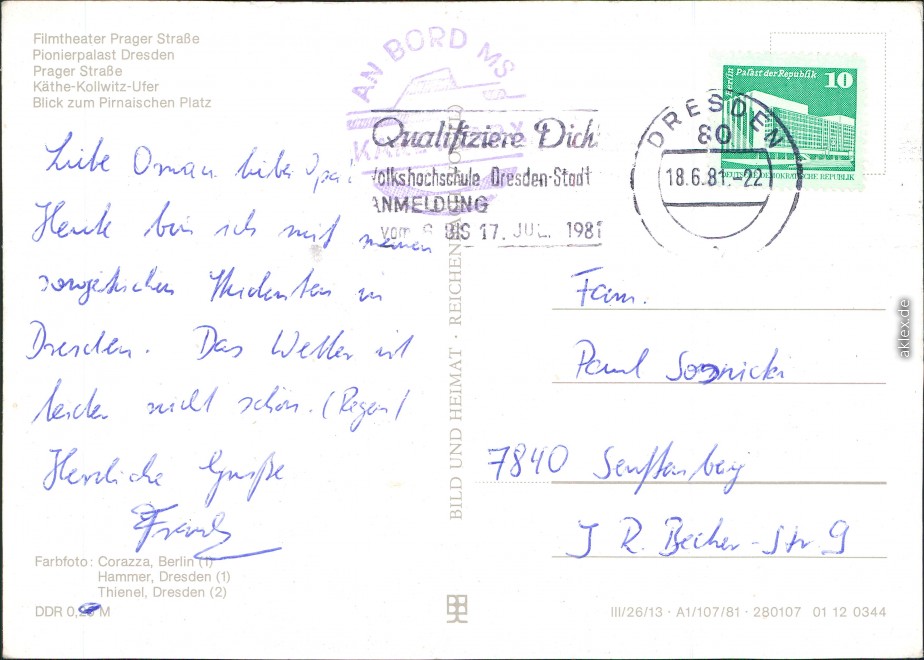 Filmtheater Prager Straße
Pionierpalast Dresden
Prager Straße
Käthe-Kollwitz-Ufer
Blick zum Pirnaischen Platz
AN BORD MS
KARL
Qualifiziere Dich
Volkshochschule Dresden-Stadt
ANMELDUNG
vom 6 BIS 17. JUL. 1981
DRESDEN
80
18.6.81.-22
Berlin Palast der Republik 10
DEUTSCHE DEMOKRATISCHE REPUBLIK
Liebe Oma u. lieber Opa!
Heute bin ich mit meinen
sowjetischen Studenten in
Dresden. Das Wetter ist
leider nicht schön. (Regen)
Herzliche Grüße
Frank
Fam.
Paul
7840 Senftenberg
J. R. Becher-Str 9
BILD UND HEIMAT · REICHENBACH
Farbfoto: Corazza, Berlin (1)
Hammer, Dresden (1)
Thienel, Dresden (2)
DDR 0,20 M
III/26/13 · A1/107/81 · 280107 01 12 0344
aklex.de